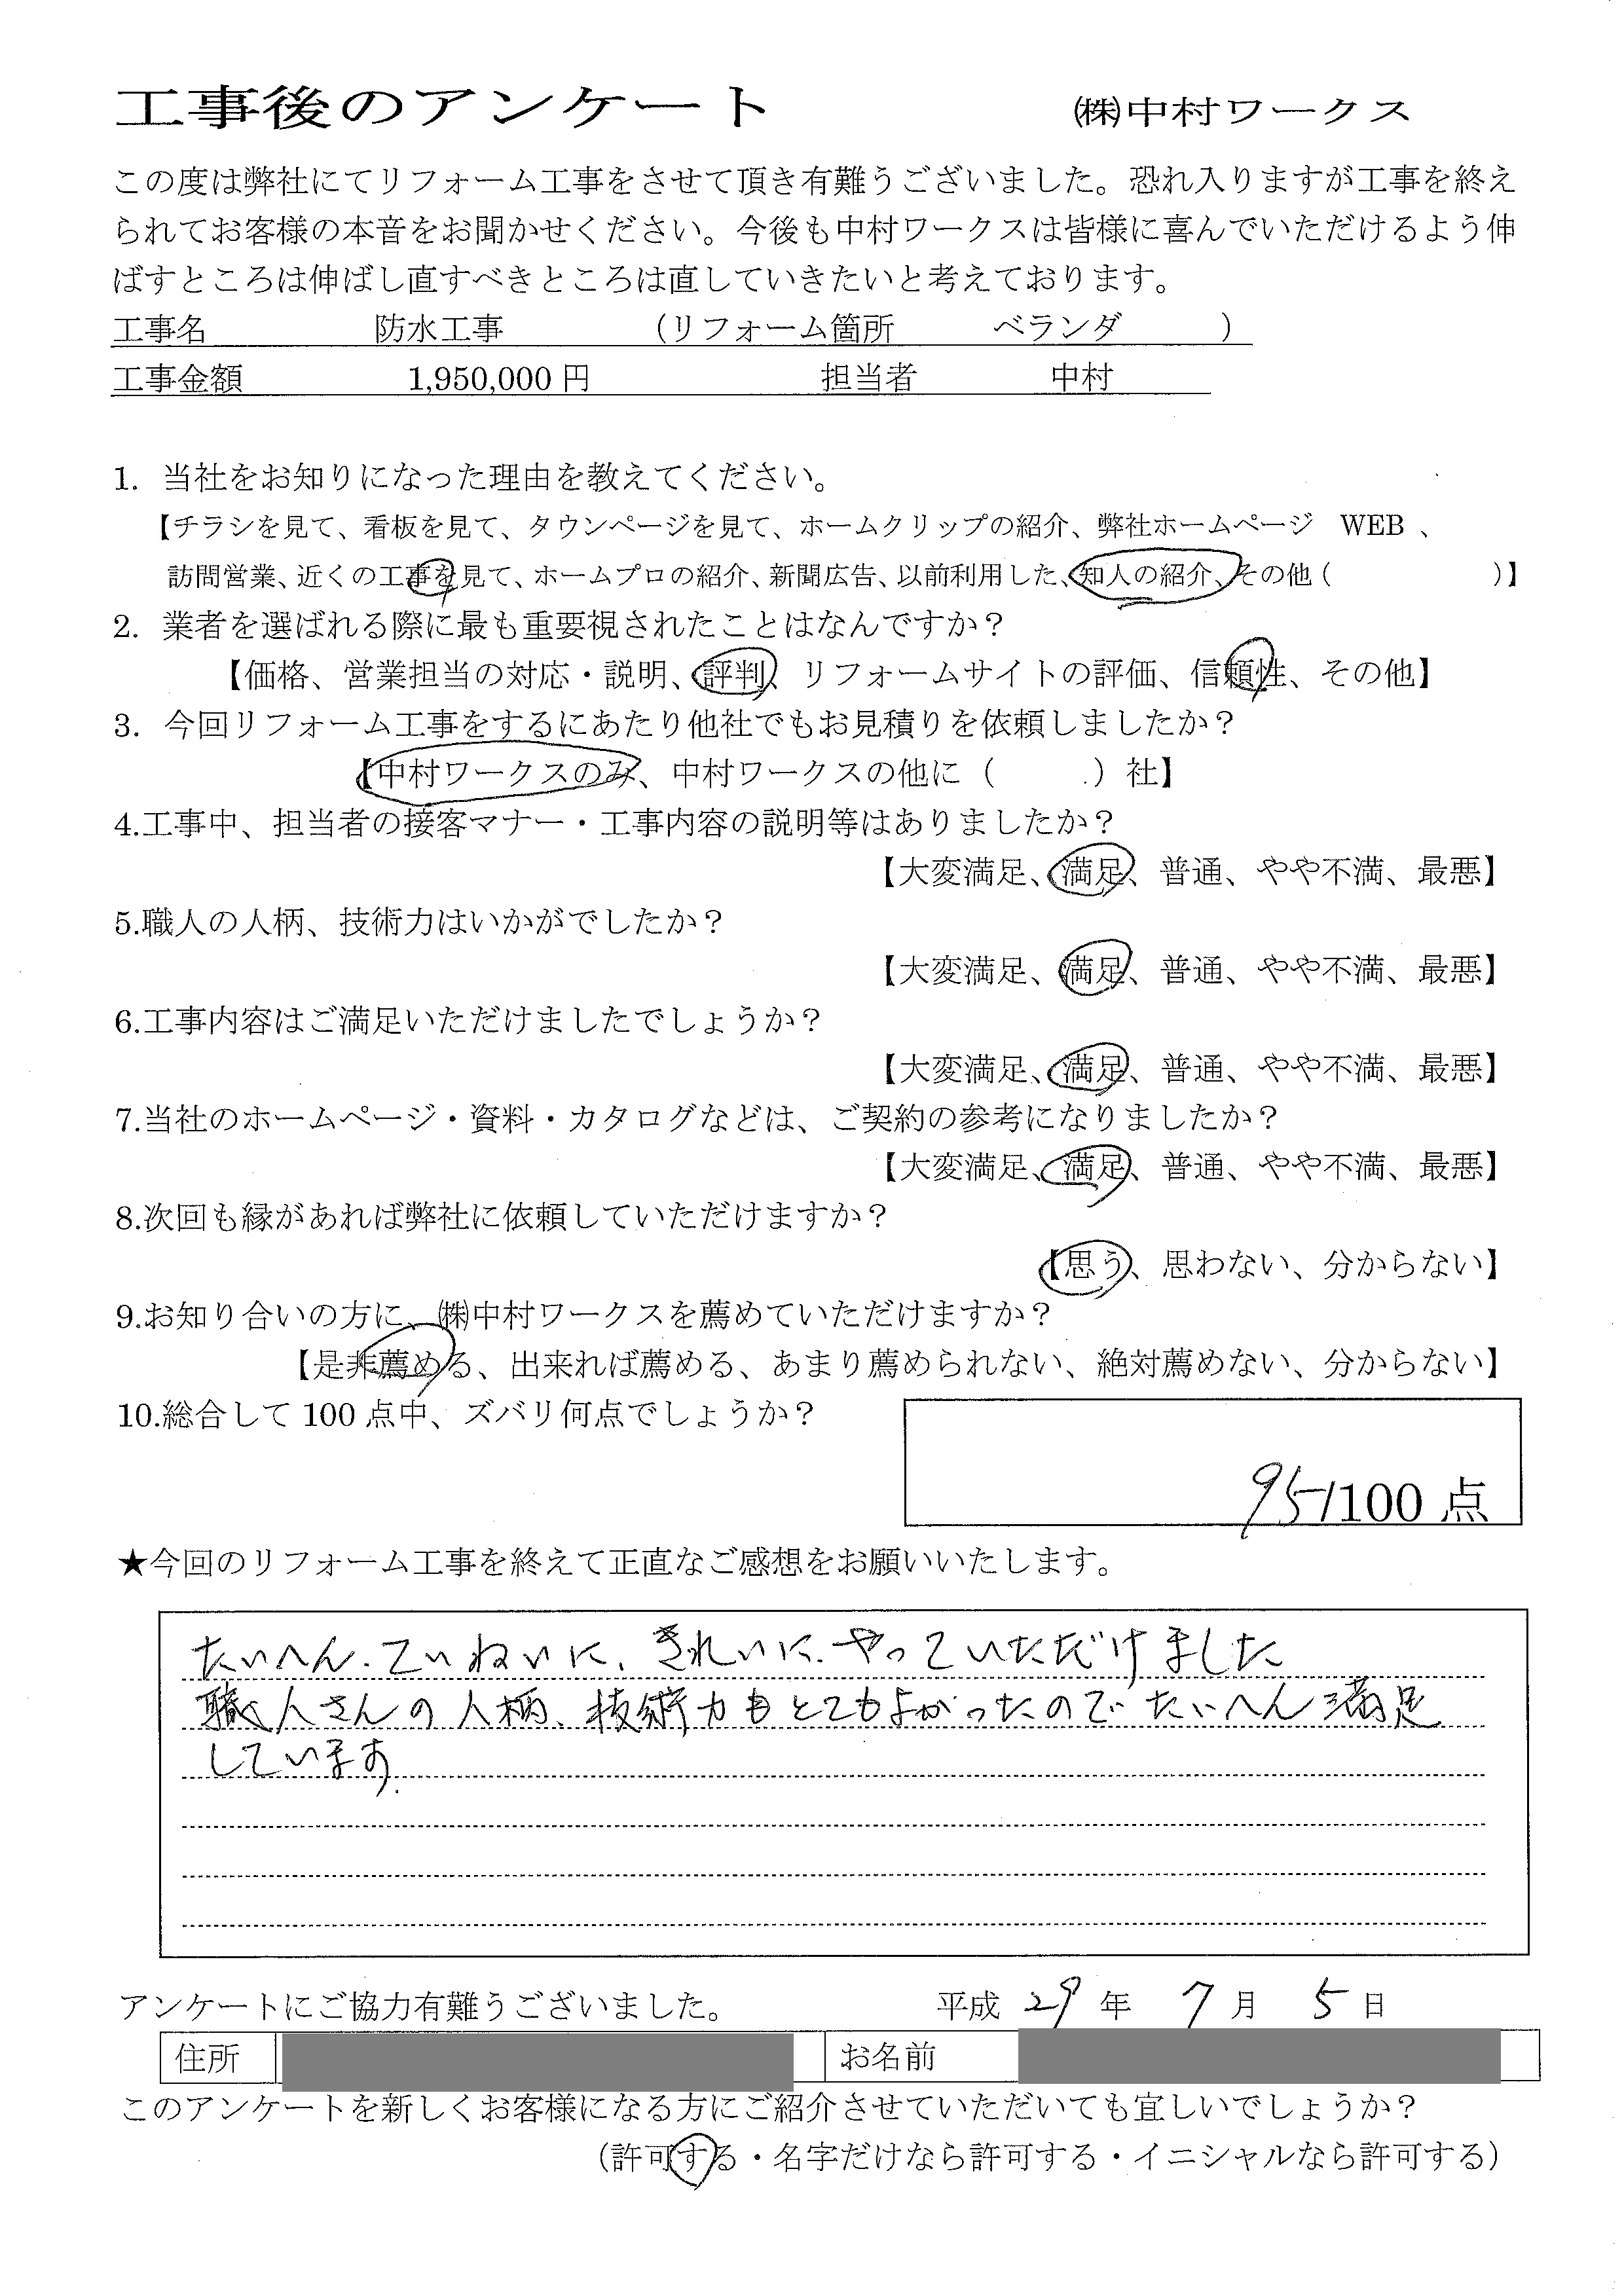 工事後のアンケート ㈱中村ワークス
この度は弊社にてリフォーム工事をさせて頂き有難うございました。恐れ入りますが工事を終え
られてお客様の本音をお聞かせください。今後も中村ワークスは皆様に喜んでいただけるよう伸
ばすところは伸ばし直すべきところは直していきたいと考えております。
工事名 防水工事 (リフォーム箇所 ベランダ )
工事金額 1,950,000円 担当者 中村
1. 当社をお知りになった理由を教えてください。
【チラシを見て、看板を見て、タウンページを見て、ホームクリップの紹介、弊社ホームページ WEB 、
訪問営業、近くの工事を見て、ホームプロの紹介、新聞広告、以前利用した、知人の紹介、その他( )】
2. 業者を選ばれる際に最も重要視されたことはなんですか？
【価格、営業担当の対応・説明、評判、リフォームサイトの評価、信頼性、その他】
3. 今回リフォーム工事をするにあたり他社でもお見積りを依頼しましたか？
【中村ワークスのみ、中村ワークスの他に（ ）社】
4.工事中、担当者の接客マナー・工事内容の説明等はありましたか？
【大変満足、満足、普通、やや不満、最悪】
5.職人の人柄、技術力はいかがでしたか？
【大変満足、満足、普通、やや不満、最悪】
6.工事内容はご満足いただけましたでしょうか？
【大変満足、満足、普通、やや不満、最悪】
7.当社のホームページ・資料・カタログなどは、ご契約の参考になりましたか？
【大変満足、満足、普通、やや不満、最悪】
8.次回も縁があれば弊社に依頼していただけますか？
【思う、思わない、分からない】
9.お知り合いの方に、㈱中村ワークスを薦めていただけますか？
【是非薦める、出来れば薦める、あまり薦められない、絶対薦めない、分からない】
10.総合して100点中、ズバリ何点でしょうか？
95/100点
★今回のリフォーム工事を終えて正直なご感想をお願いいたします。
たいへん、ていねいに、きれいに、やっていただけました
職人さんの人柄、技術力もとてもよかったので、たいへん満足
しています.
アンケートにご協力有難うございました。 平成 29 年 7 月 5 日
住所 お名前
このアンケートを新しくお客様になる方にご紹介させていただいても宜しいでしょうか？
（許可する・名字だけなら許可する・イニシャルなら許可する）